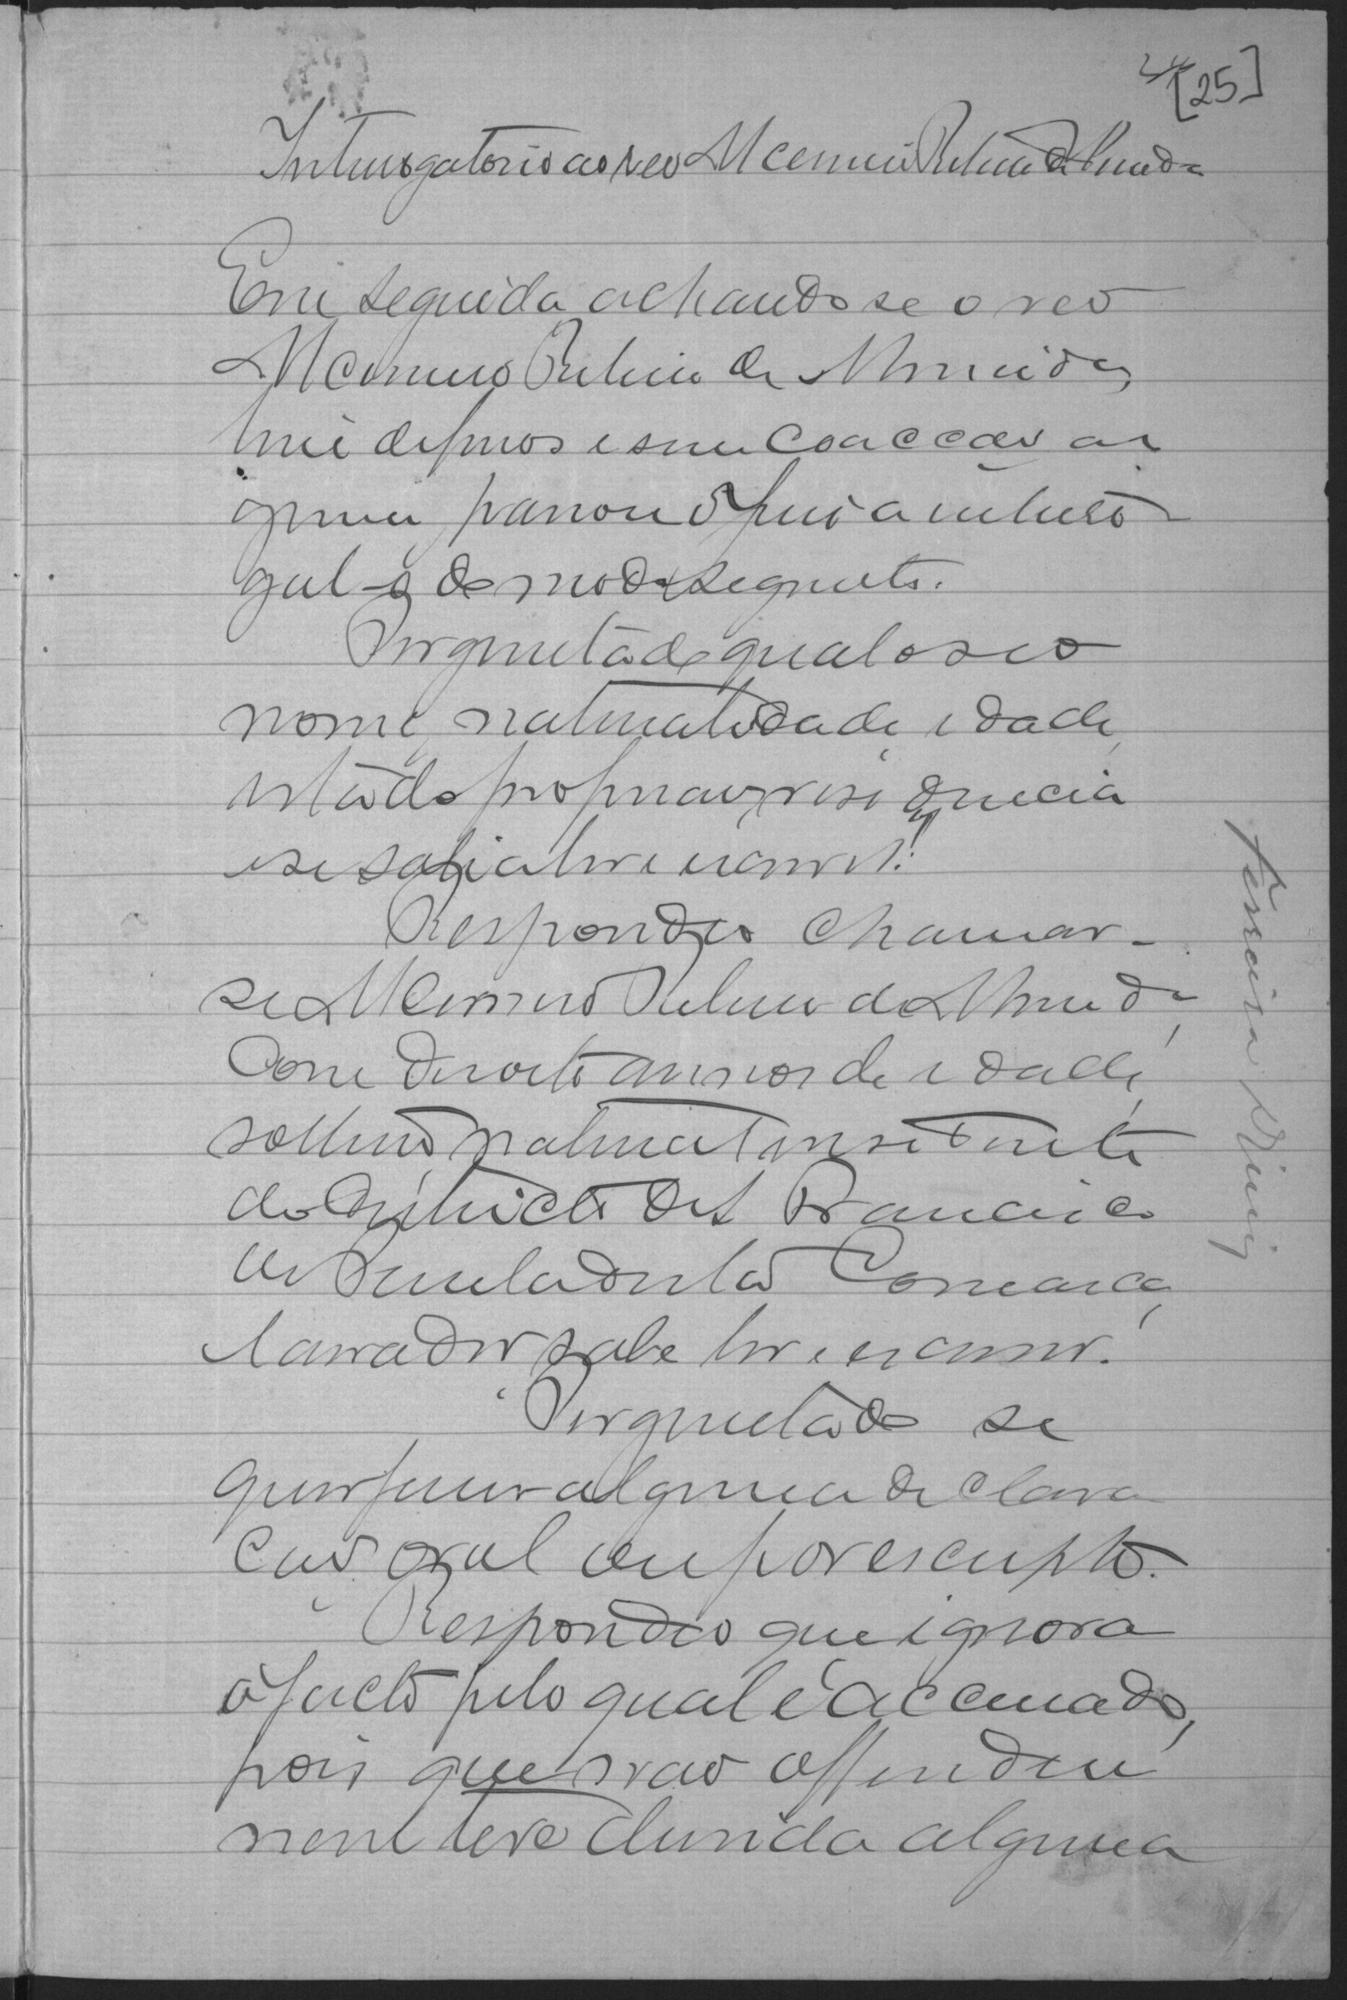 [25]
Interrogatorio ao reo Alcemiro Ribeiro de Almeida
Em seguida achando se o reo
Alcemiro Ribeiro de Almeida,
livre de ferros e sem coacção al
guma passou o Juiz a interro
gal-o do modo seguinte.
Perguntado qual o seo
nome, naturalidade, idade,
estado, profissão, residencia
e se sabia ler e escrever.
Respondeo chamar-
se Alcemiro Ribeiro de Almeida,
com dezoito annos de idade,
solteiro, natural e residente
do Districto de S Francisco
de Paula desta Comarca,
lavrador, sabe ler e escrever.
Perguntado se
quer fazer alguma declara
ção oral ou por escripto.
Respondeo que ignora
o facto pelo qual é accusado,
pois que não offendeu
nem teve duvida alguma
Ferreira Diniz